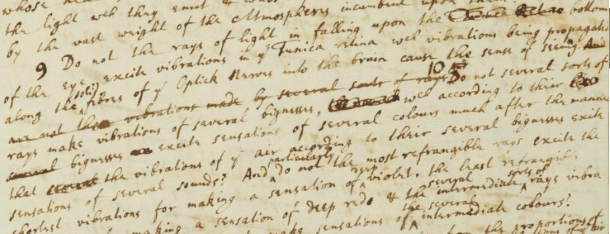 the light web they emit
by the vast weight of the Atmosphere incumbent upon
9 Do not the rays of light in falling upon the bottom
of the eye excite vibrations in yͤ Tunica retina wch vibrations being propagated
along the solid fibres of yͤ Optick Nerves into the brain cause the sense of seeing. And
are not the vibrations made by several sorts of rays 10 Do not several sorts of
rays make vibrations of several bignesses, wch according to their
several bignesses excite sensations of several colours much after the manner
that the vibrations of yͤ air according to their several bignesses excite
sensations of several sounds? And particularly do not the most refrangible rays excite the
shortest vibrations for making a sensation of deep violet, the least refrangible
making a sensation of deep red & the several intermediate sorts of rays vibra
make sensations of the several intermediate colours?
the proportions of